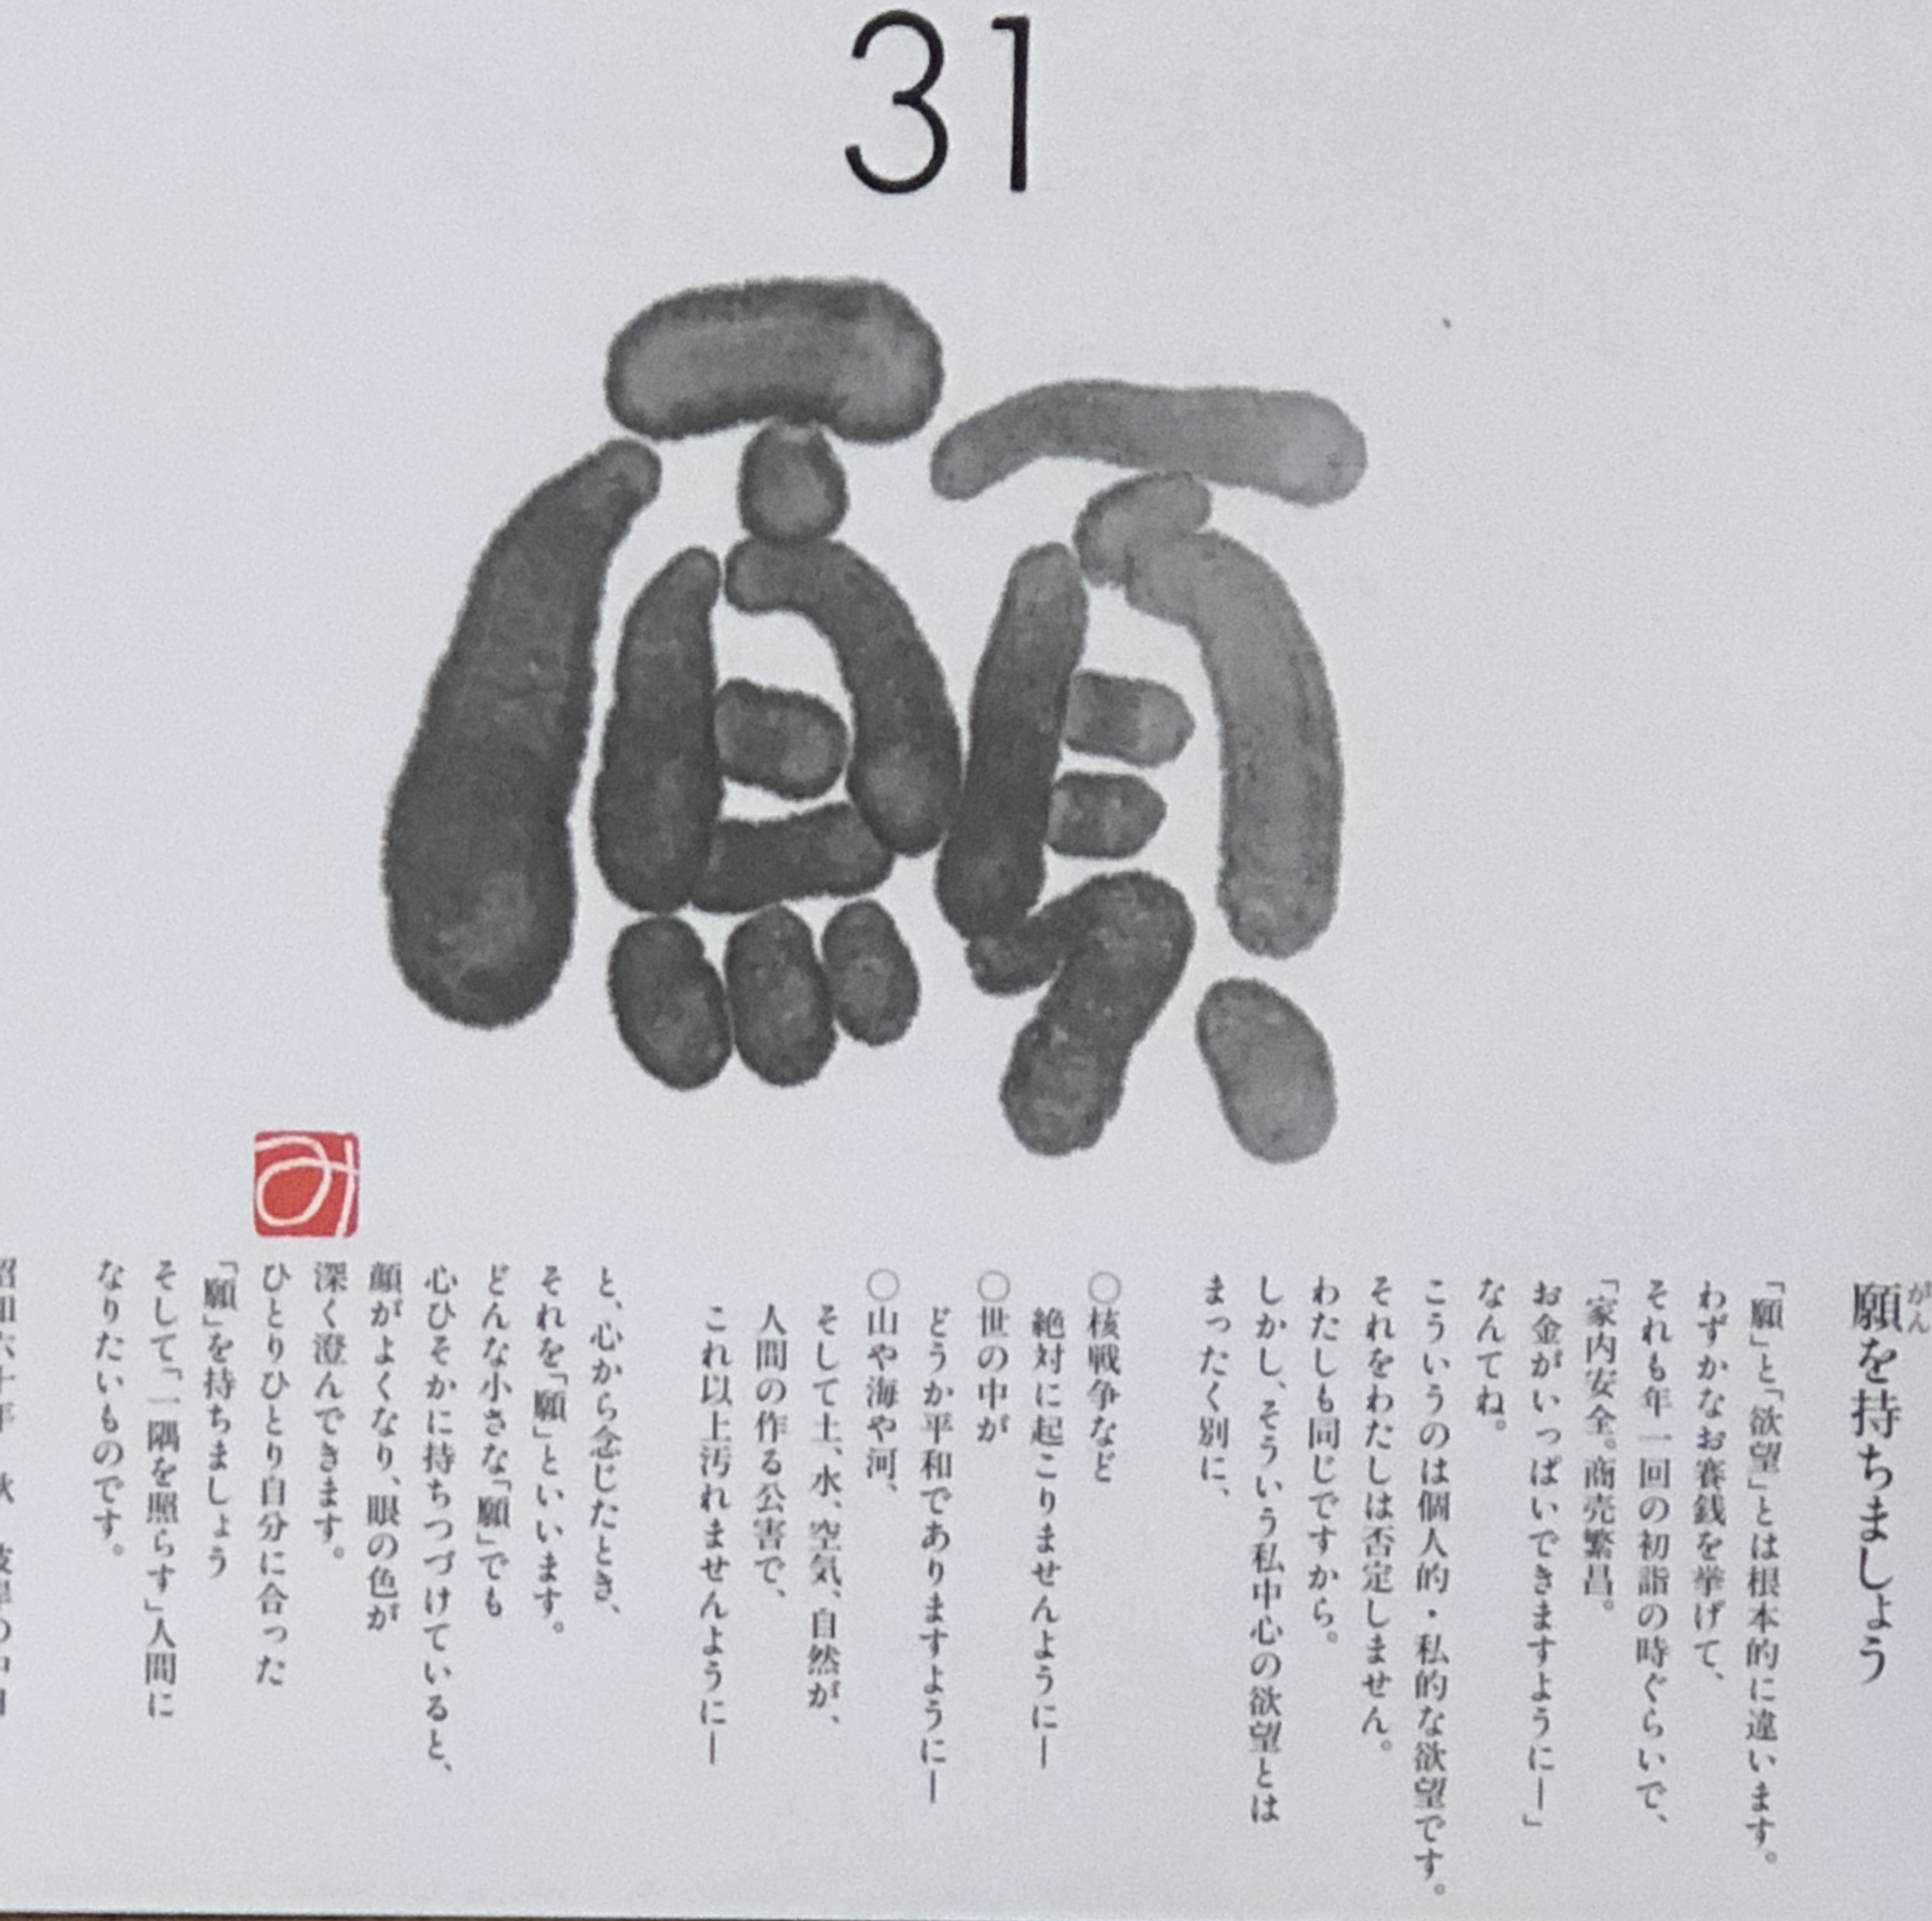 31
願
み
願を持ちましょう
がん
「願」と「欲望」とは根本的に違います。
わずかなお賽銭を挙げて、
それも年一回の初詣の時ぐらいで、
「家内安全。商売繁昌。
お金がいっぱいできますように―」
なんてね。
こういうのは個人的・私的な欲望です。
それをわたしは否定しません。
わたしも同じですから。
しかし、そういう私中心の欲望とは
まったく別に、
○核戦争など
絶対に起こりませんように―
○世の中が
どうか平和でありますように―
○山や海や河、
そして土、水、空気、自然が、
人間の作る公害で、
これ以上汚れませんように―
と、心から念じたとき、
それを「願」といいます。
どんな小さな「願」でも
心ひそかに持ちつづけていると、
顔がよくなり、眼の色が
深く澄んできます。
ひとりひとり自分に合った
「願」を持ちましょう
そして「一隅を照らす」人間に
なりたいものです。